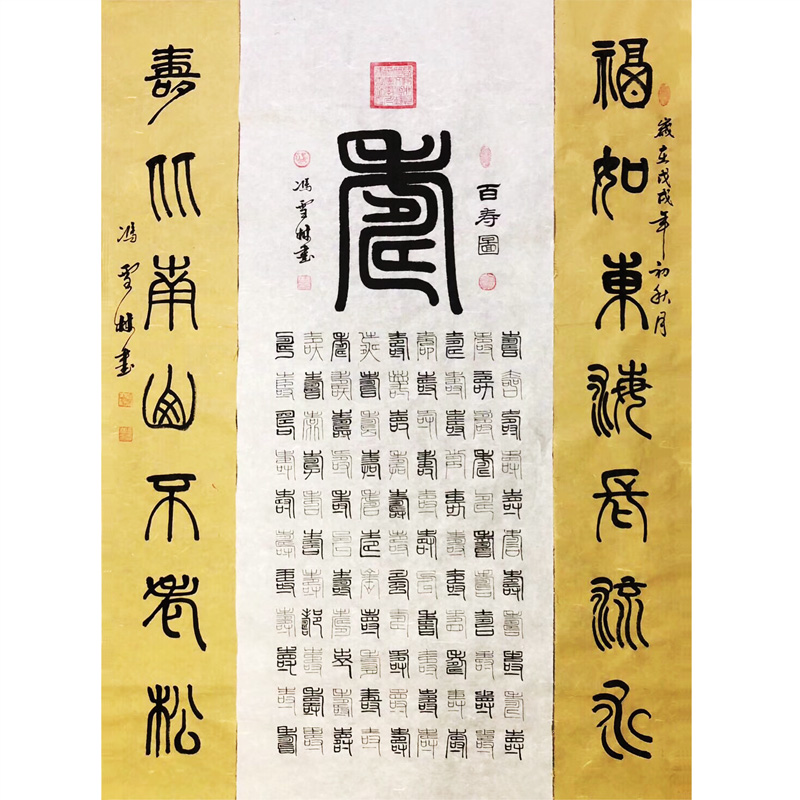 福如東海長流水
歲在戊戌年初秋月
百寿圖
壽
馮雪林書
壽壽壽壽壽壽壽壽壽
壽壽壽壽壽壽壽壽壽
壽壽壽壽壽壽壽壽壽
壽壽壽壽壽壽壽壽壽
壽壽壽壽壽壽壽壽壽
壽壽壽壽壽壽壽壽壽
壽壽壽壽壽壽壽壽壽
壽壽壽壽壽壽壽壽壽
壽壽壽壽壽壽壽壽壽
壽壽壽壽壽壽壽壽壽
壽壽壽壽壽壽壽壽壽
壽比南山不老松
馮雪林書